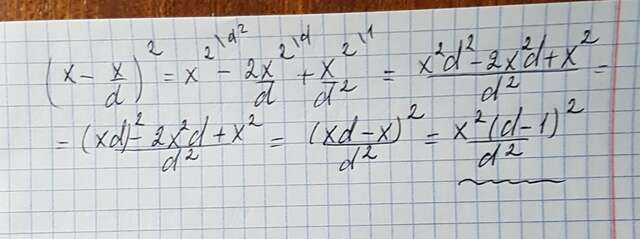 (x - x/d)² = x²\d² - 2x²/d\d + x²/d²\1 = (x²d² - 2x²d + x²)/d² =
= ((xd)² - 2x²d + x²)/d² = (xd - x)²/d² = x²(d - 1)²/d²